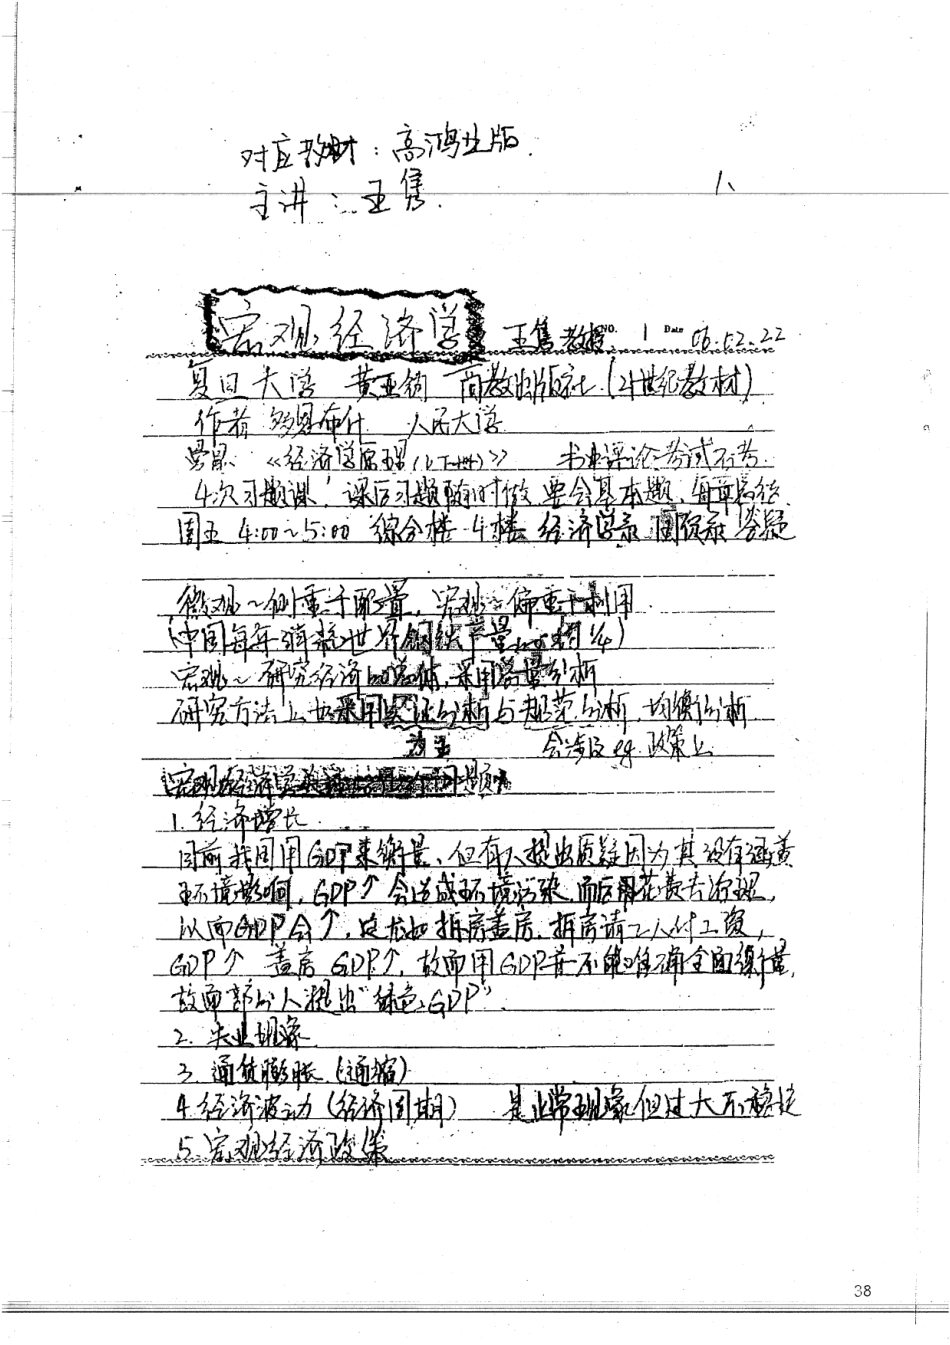 对应教材：高鸿业版.
主讲：王隽.
1、
宏观经济学 王隽教授 NO. 1 Date 06.02.22
复旦大学 黄亚钧 高教出版社 (21世纪教材)
作者 多恩布什 人民大学
曼昆 《经济学原理(下册)》 书中评论考试不考.
4次习题课，课后习题随时做 要会基本题，每章总结
周五 4:00~5:00 综合楼 4楼 经济学系 国贸系 答疑
微观~侧重于配置，宏观~偏重于利用
(中国每年消耗世界钢铁产量的1/4)
宏观~研究经济的总体，采用总量分析
研究方法上也采用实证分析与规范分析，均衡分析
为主 会涉及 eg. 政策上
宏观经济学 问题
1. 经济增长
目前我国用GDP来衡量、但有人提出质疑因为其没有涵盖
环境影响，GDP↑会造成环境污染，而后用花费去治理，
从而GDP会↑，这尤如拆房盖房，拆房请工人付工资，
GDP↑ 盖房GDP↑，故而用GDP并不能准确全面衡量，
故而部分人提出“绿色GDP”.
2. 失业现象
3. 通货膨胀 (通缩)
4. 经济波动 (经济周期) 是正常现象但过大不稳定
5. 宏观经济政策
38